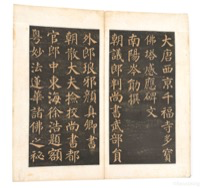 大唐西京千福寺多寶
佛塔感應碑文
南陽岑勛撰
朝議郎判尚書武部員
外郎琅邪顏真卿書
朝散大夫撿挍尚書都
官郎中東海徐浩題額
粵妙法蓮華諸佛之秘